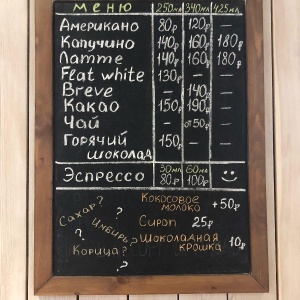 меню 250мл 340мл 425мл
Американо 80₽ 120₽ —
Капучино 140₽ 160₽ 180₽
Латте 140₽ 160₽ 180₽
Flat white 130₽ — —
Breve — 140₽ —
Какао 150₽ 190₽ —
Чай — от 50₽ —
Горячий
шоколад 150₽ — —
Эспрессо 30мл 80₽ 60мл 100₽
Сахар?
Имбирь?
Корица?
Кокосовое
молоко +50₽
Сироп 25₽
Шоколадная
крошка 10₽